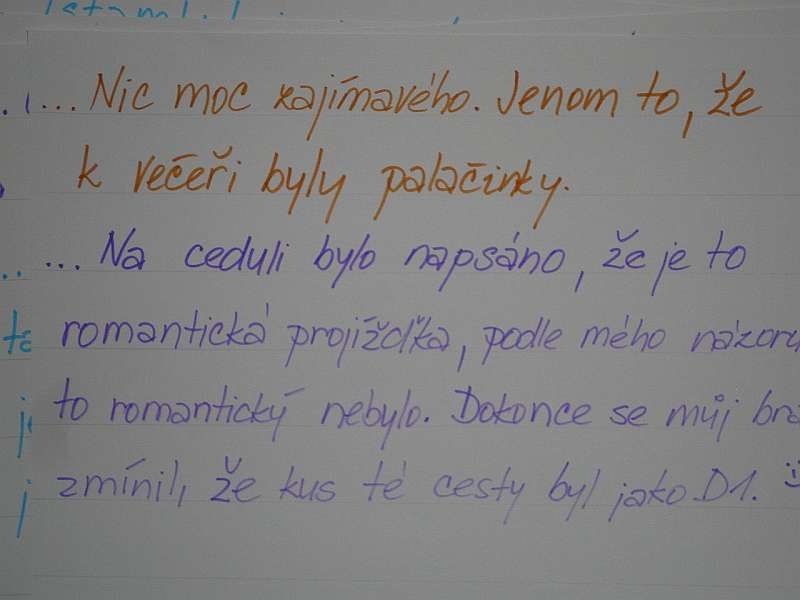 ... Nic moc zajímavého. Jenom to, že
k večeři byly palačinky.
... Na ceduli bylo napsáno, že je to
romantická projížďka, podle mého názoru
to romantický nebylo. Dokonce se můj
zmínil, že kus té cesty byl jako D1. :)